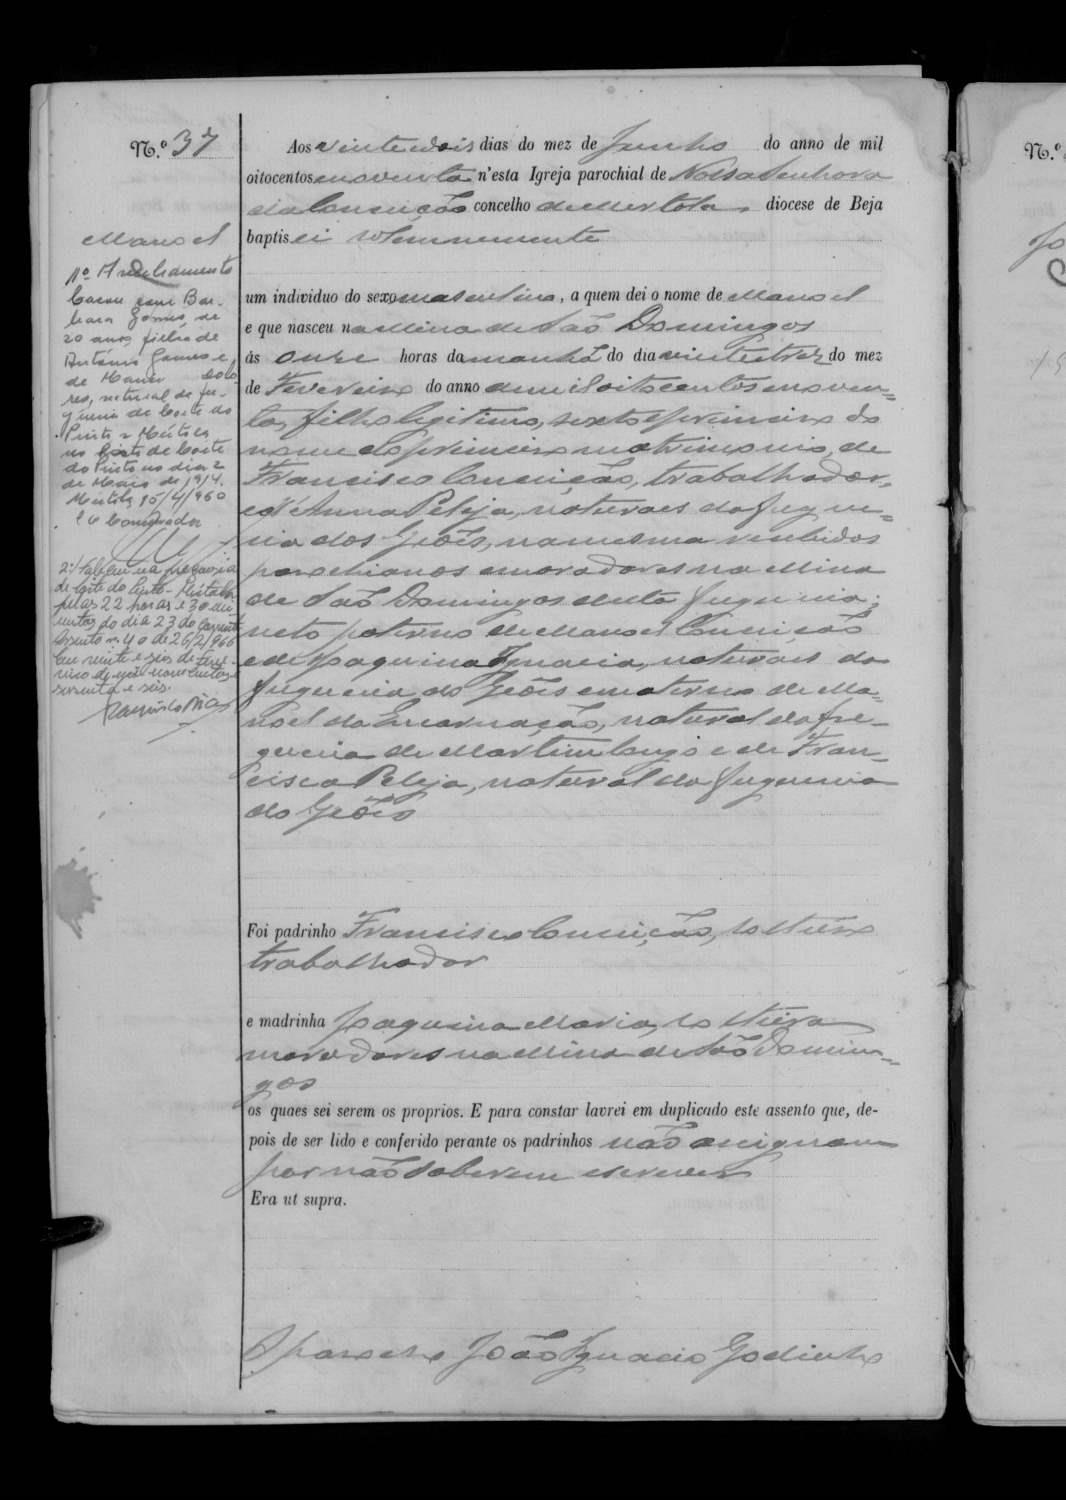 N.º 37
Manoel
1º Averbamento
Casou com Bár-
bara Gomes, de
20 anos, filha de
António Gomes e
de Maria Dolo-
res, natural da fre-
guesia de Corte do
Pinto - Mértola
no Posto de Corte
do Pinto no dia 2
de Maio de 1914.
Mértola 15/4/960
O Conservador
2º Faleceu na freguesia
de Corte do Pinto - Mértola
pelas 22 horas e 30 mi-
nutos do dia 23 do corrente
Assento nº 40 de 26/2/966
Em vinte e seis de Feve-
reiro de mil novecentos e
sessenta e seis.
Aos vinte e dois dias do mez de Junho do anno de mil
oitocentos e noventa n'esta Igreja parochial de Nossa Senhora
da Conceição concelho de Mertola, diocese de Beja
baptisei solemnemente
um individuo do sexo masculino, a quem dei o nome de Manoel
e que nasceu na Mina de São Domingos
ás onze horas da manhã do dia vinte e trez do mez
de Fevereiro do anno de mil oito centos e noven-
ta, filho legitimo, sexto e primeiro do
nome do primeiro matrimonio, de
Francisco Conceição, trabalhador,
e d'Anna Peleja, naturaes da fregue-
sia dos Giões, na mesma recebidos
parochianos e moradores na Mina
de São Domingos desta freguezia;
neto paterno de Manoel Conceição
e de Joaquina Ignacia, naturaes da
freguezia do Giões e materno de Ma-
noel da Encarnação, natural da fre-
guezia de Martim Longo e de Fran-
cisca Peleja, natural da freguezia
do Giões
Foi padrinho Francisco Conceição, solteiro
trabalhador
e madrinha Joaquina Maria, solteira
moradores na Mina de São Domin-
gos
os quaes sei serem os proprios. E para constar lavrei em duplicado este assento que, de-
pois de ser lido e conferido perante os padrinhos não assignam
por não saberem escrever
Era ut supra.
O parocho João Ignacio Godinho
N.º